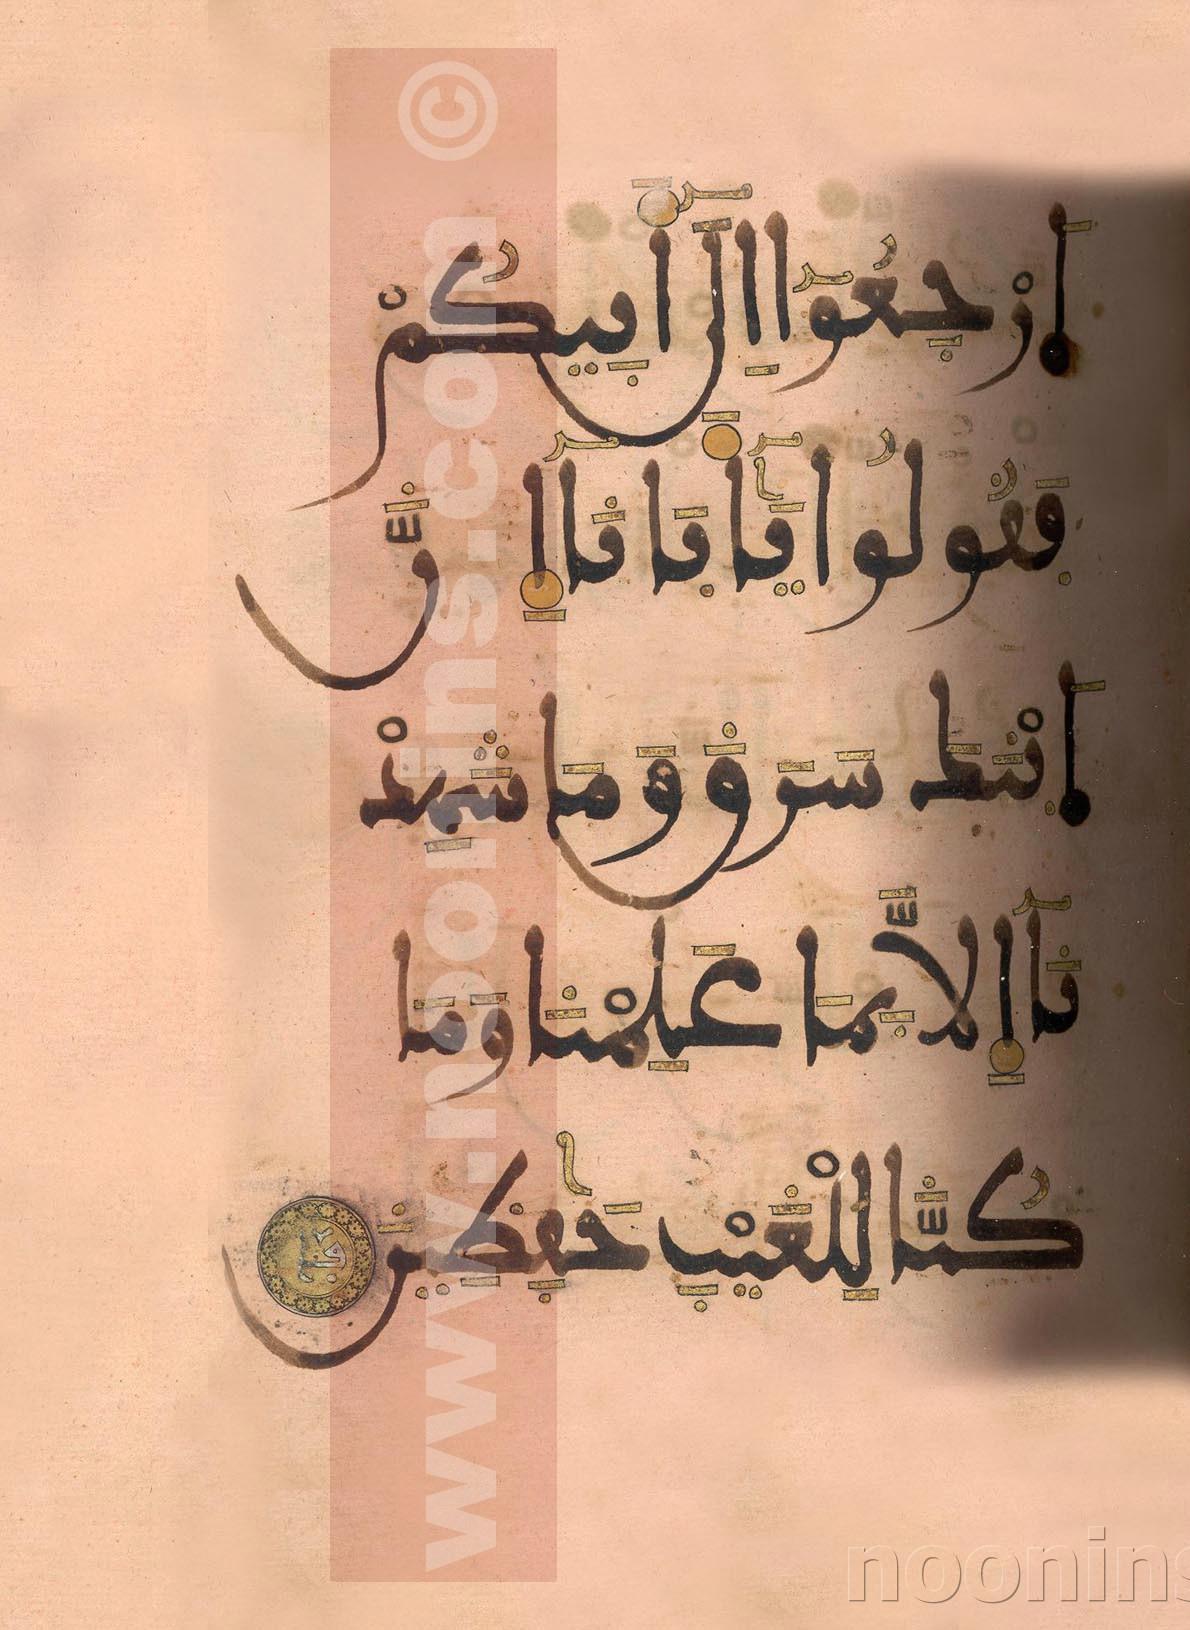 اَرْجِعُوٓا إِلَىٰٓ أَبِيكُمْ
فَقُولُوا يَٰٓأَبَانَآ إِنَّ
اَبْنَكَ سَرَقَ وَمَا شَهِدْ
نَآ إِلَّا بِمَا عَلِمْنَا وَمَا
كُنَّا لِلْغَيْبِ حَٰفِظِينَ
www.noonins.com ©
noonins